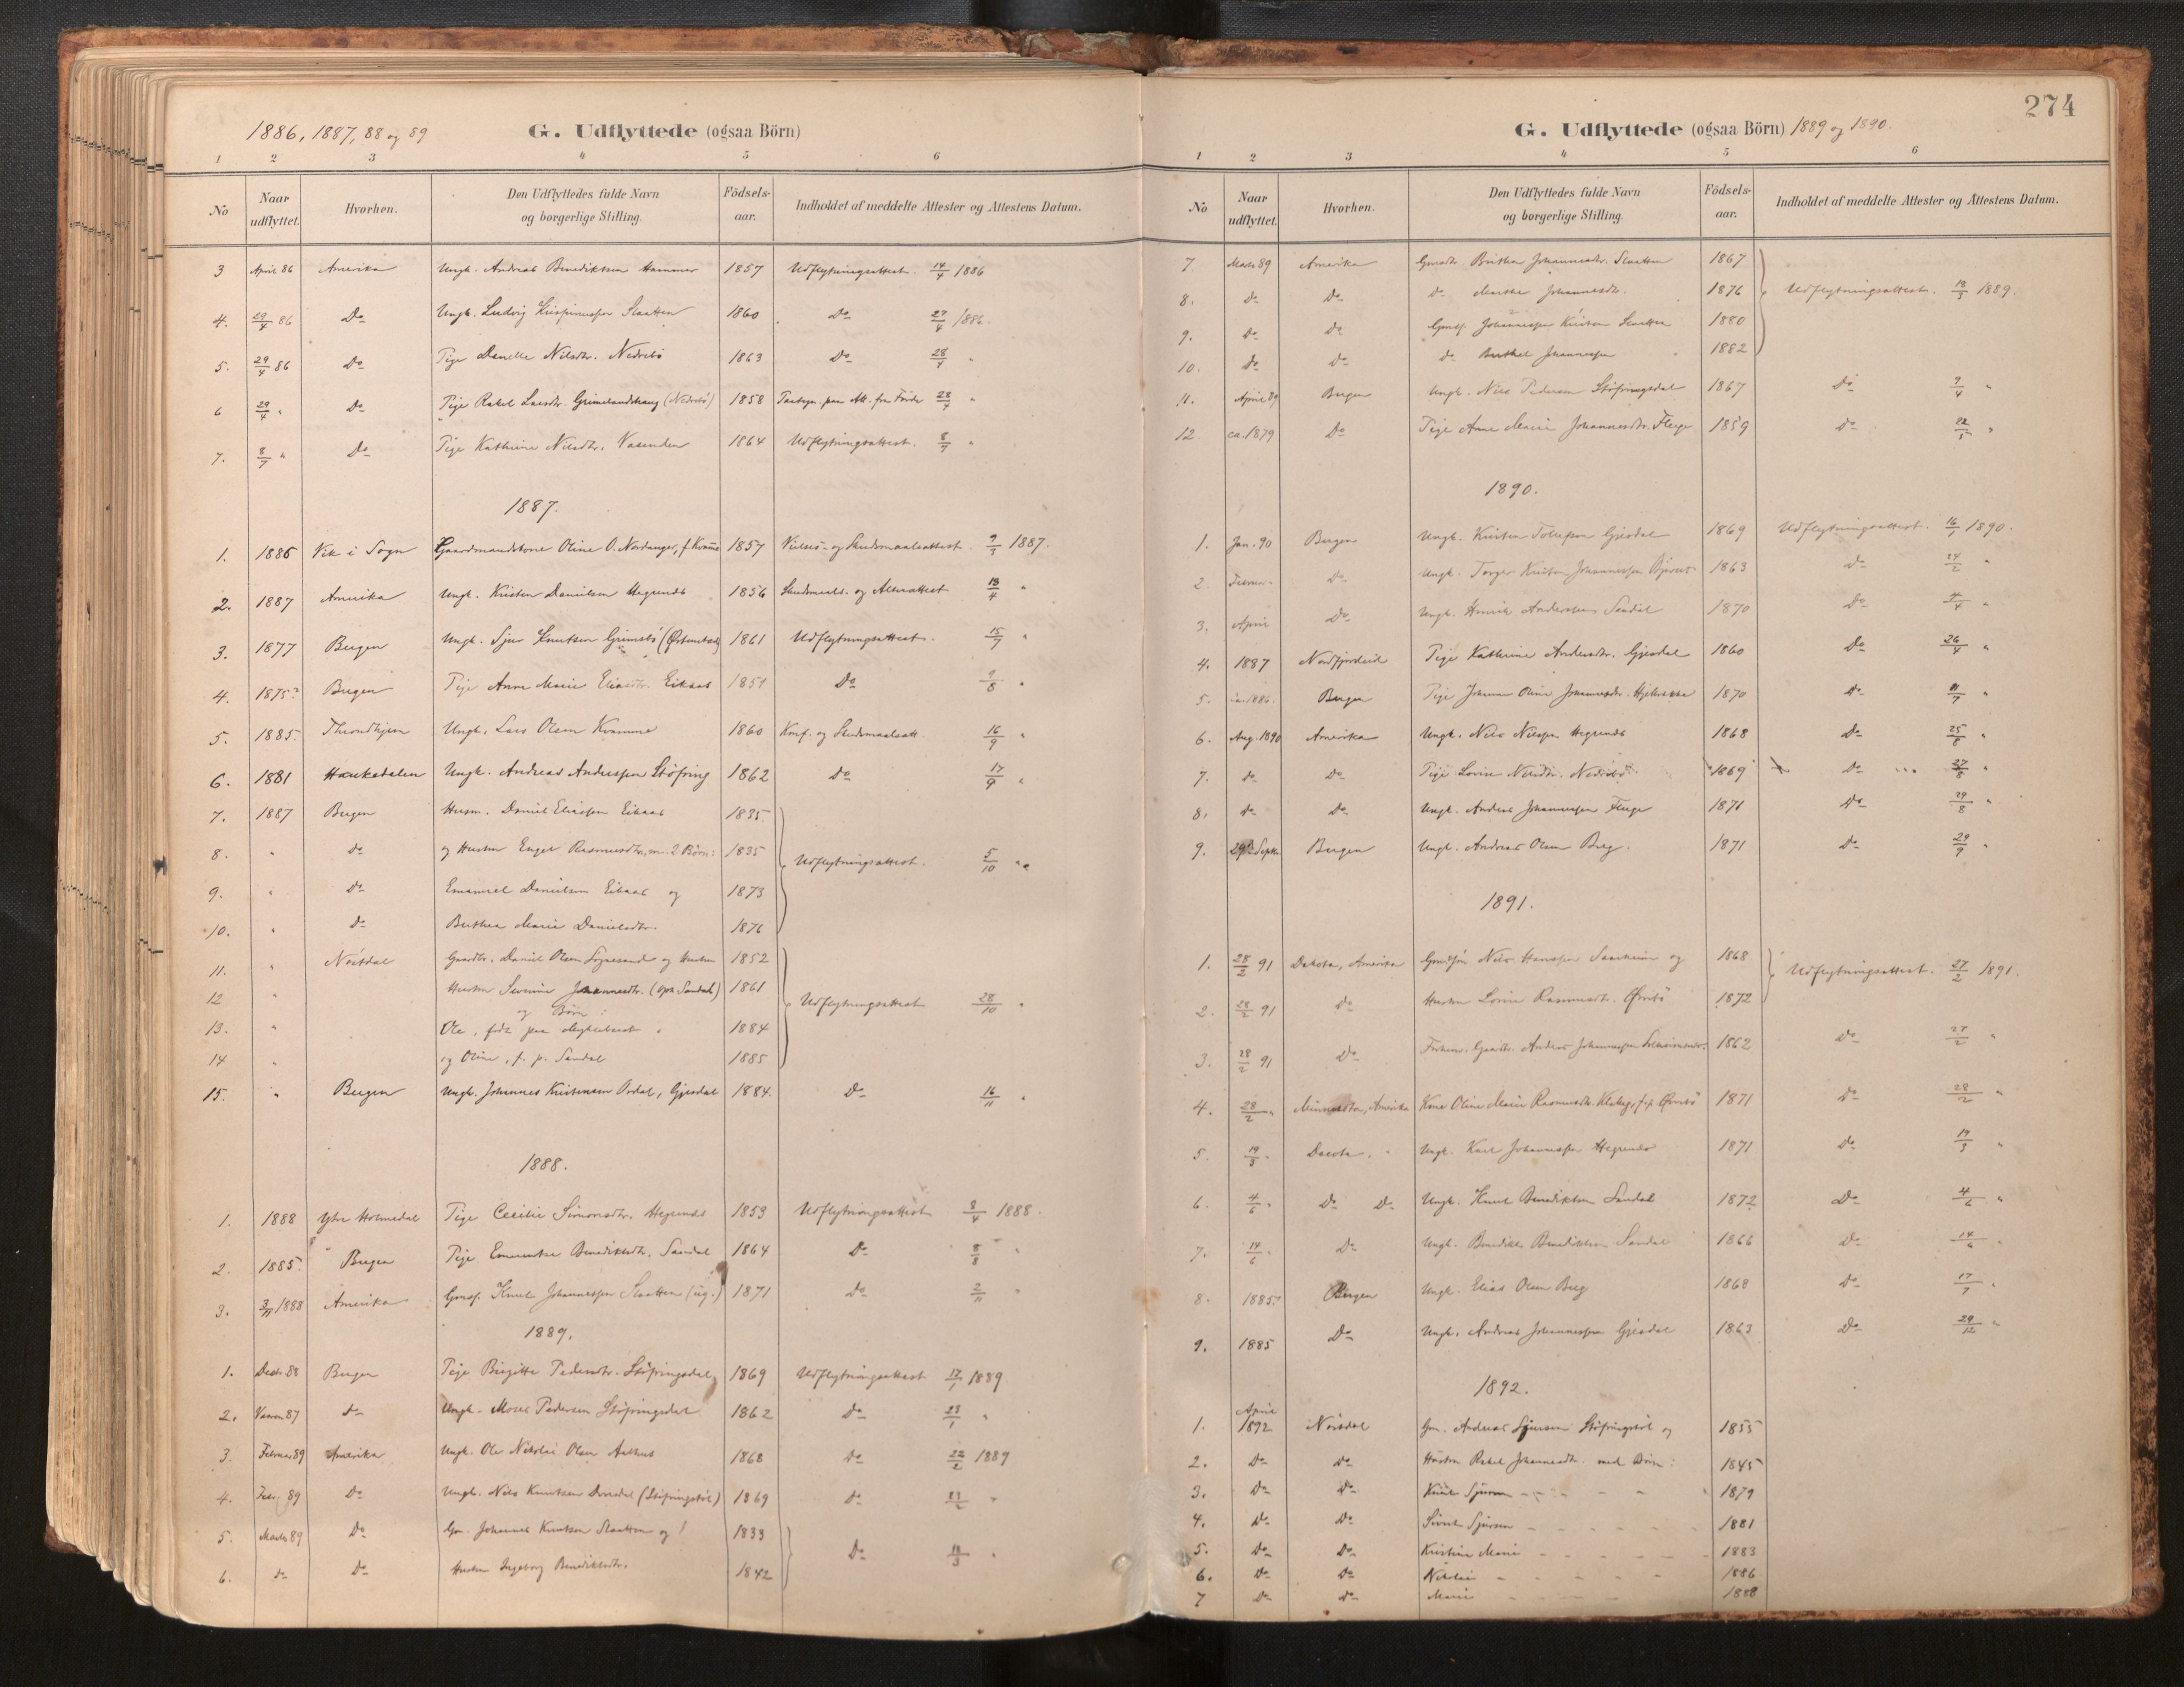 1886, 1887, 88 og 89
G. Udflyttede (ogsaa Börn)
1 2 3 4 5 6
No Naar udflyttet. Hvorhen. Den Udflyttedes fulde Navn og borgerlige Stilling. Födsels-aar. Indholdet af meddelte Attester og Attestens Datum.
3 April 86 Amerika Ungk. Andreas Benediktsen Hammer 1857 Udflytningsattest. 14/4 1886
4. 29/4 86 Do Ungk. Ludvig Slaatten 1860 Do 27/4 1886.
5. 29/4 86 Do Pige Danelle Nilsdtr. Nedrebö 1863 Do 28/4
6 29/4 " Do Pige Rakel Larsdtr. Grimelandshaug (Nedrebö) 1858 Paategn. paa Att. fra Förde 28/4 "
7. 8/7 " Do Pige Kathrine Nilsdtr. Vasenden 1864 Udflytningsattest. 8/7 "
1887.
1. 1886 Vik i Sogn Gaardmandskone Oline O. Nordanger, f. Kvamme 1857 Vielses- og Skudsmaalsattest 9/3 1887.
2. 1887 Amerika Ungk. Kristen Danielsen Hegrenæs 1856 Skudsmaals- og Alterattest 18/4 "
3. 1877 Bergen Ungk. Sjur Knutsen Grimsbö 1861 Udflytningsattest. 15/7 "
4. 1875? Bergen Pige Anne Marie Eliasdtr. Eikaas 1851 Do 9/8 "
5. 1885. Throndhjem Ungk. Lars Olsen Kvamme 1860 Konf. og Skudsmaalsatt. 16/9 "
6. 1881 Haukedalen Ungk. Andreas Anderssen Stöfring 1862 Do 17/9 "
7. 1887 Bergen Husm. Daniel Eliassen Eikaas 1835.
8. " do og Hustru Engel Rasmusdtr, m. 2 Börn: 1835 Udflytningsattest. 5/10 "
9. " do Emanuel Danielsen Eikaas og 1873
10. " do Berthea Marie Danielsdtr. 1876
11. " Naustdal Gaardbr. Daniel Olsen Sognesand og Hustru 1852
12 " Hustru Severine Johannesdtr. (oph. Sandal) 1861 Udflytningsattest 28/10 "
og Börn:
13. " Ole, född paa 1884
14 " og Oline, f. p. Sandal 1885
15. " Bergen Ungk. Johannes Kristensen Aardal, Gjesdal 1884. Do 16/11 "
1888.
1. 1888 Ytre Holmedal Pige Cecilie Simonsdtr. Hegrenæs 1853 Udflytningsattest 8/4 1888.
2. 1885. Bergen Pige Emerentse Benediktsdtr. Sandal 1864 Do 8/8 "
3. 3/11 1888 Amerika Gmsf. Knut Johannessen Slaatten (ug.) 1871 Do 2/11 "
1889.
1. Decbr 88 Bergen Pige Birgitte Pedersdtr. Stöfringsdal 1869 Udflytningsattest 17/1 1889
2. Vaaren 87 do Ungk. Moses Pedersen Stöfringsdal 1862 do 23/1 "
3. Februar 89 Amerika Ungk. Ole Nikolai Olsen Aalhus 1868 do 22/2 1889
4. Febr. 89 Do Ungk. Nils Knutsen (Stöfringstöl) 1869 do 23/2 "
5. Marts 89 Do Gm. Johannes Knutsen Slaatten og 1833
6. do Do Hustru Ingeborg Benediktsdtr. 1842 Do 18/3 "
274
G. Udflyttede (ogsaa Börn) 1889 og 1890.
1 2 3 4 5 6
No Naar udflyttet. Hvorhen. Den Udflyttedes fulde Navn og borgerlige Stilling. Födsels-aar. Indholdet af meddelte Attester og Attestens Datum.
7. Marts 89 Amerika Gmsdtr. Brithea Johannesdtr. Slaatten 1867
8. do Do do Marthe Johannesdtr. 1876 Udflytningsattest. 18/3 1889.
9. do do Gmsf. Johannessen Kristen Slaatten 1880
10. do do do Berthel Johannessen 1882
11. April 89 Bergen Ungk. Nils Pedersen Stöfringsdal 1867 do 9/4 "
12. ca. 1879 Do Pige Anne Marie Johannesdtr. Fluge 1859 do "
1890.
1. Jan. 90 Bergen Ungk. Kristen Tollefsen Gjesdal 1869 Udflytningsattest. 16/1 1890.
2. Februar " Do Ungk. Torger Kristen Johannessen 1863 Do 24/2 "
3. April Do Ungk. Henrik Anderssen Sandal 1870 Do 4/4 "
4. 1887 Nordfjordeid Pige Kathrine Andersdtr. Gjesdal 1860 Do 26/4 "
5. ca. 1886. Bergen Pige Johanne Oline Johannesdtr. 1870 Do 11/7 "
6. Aug. 1890 Amerika Ungk. Nils Nilssen Hegrenæs 1868 Do 25/8 "
7. do Do Pige Lovise Nilsdtr. Nedrebö 1869 Do 27/8 "
8. do Do Ungk. Andreas Johannessen Fluge 1871 Do 29/8 "
9. 29de Septbr. Bergen Ungk. Andreas Olsen Berg. 1871 Do 29/9 "
1891.
1. 28/2 91 Dakota, Amerika Nils Hanssen og 1868 Udflytningsattest. 27/2 1891.
2. 28/2 91 Do Hustru Lovise Rasmusdtr. Övrebö 1872
3. 28/2 91 Do Forhenv. Gaardbr. Andreas Johannessen 1862 Do 27/2 "
4. 28/2 " Minnesota, Amerika Kone Oline Marie Rasmusdtr. f. p. Övrebö 1871 do 28/2 "
5. 19/3 " Dacota. " Ungk. Karl Johannessen Hegrenæs 1871 Do 19/3 "
6. 4/6 " Do Do Ungk. Knut Benediktsen Sandal 1872 Do 4/6 "
7. 14/6 " Do Ungk. Benedikt Benediktsen Sandal 1866 Do 14/6 "
8. 1885? Bergen Ungk. Elias Olsen Berg 1868 Do 17/7 "
9. 1885 Do Ungk. Andreas Johannessen Gjesdal 1863 Do 29/12 "
1892.
1. April 1892 Naustdal Gm. Andreas Sjursen Stöfringstöl og 1855
2. Do do Hustru Rakel Johannesdtr. med Börn: 1845
3. Do do Knut Sjursen - - - 1879
4. Do Do Sivert Sjursen - - - 1881
5. Do Do Kristine Marie - - - 1883
6. Do Do Nikolai - - - 1886
7 Do do Marie - - - 1888